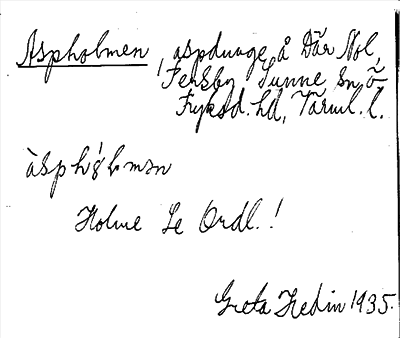 Aspholmen, aspdunge å Där Nol,
Fensby Sunne sn ö
Fryksd. hd, Värml. l.
àsph8́lmən
Holme Se Ordl.!
Greta Hedin 1935.